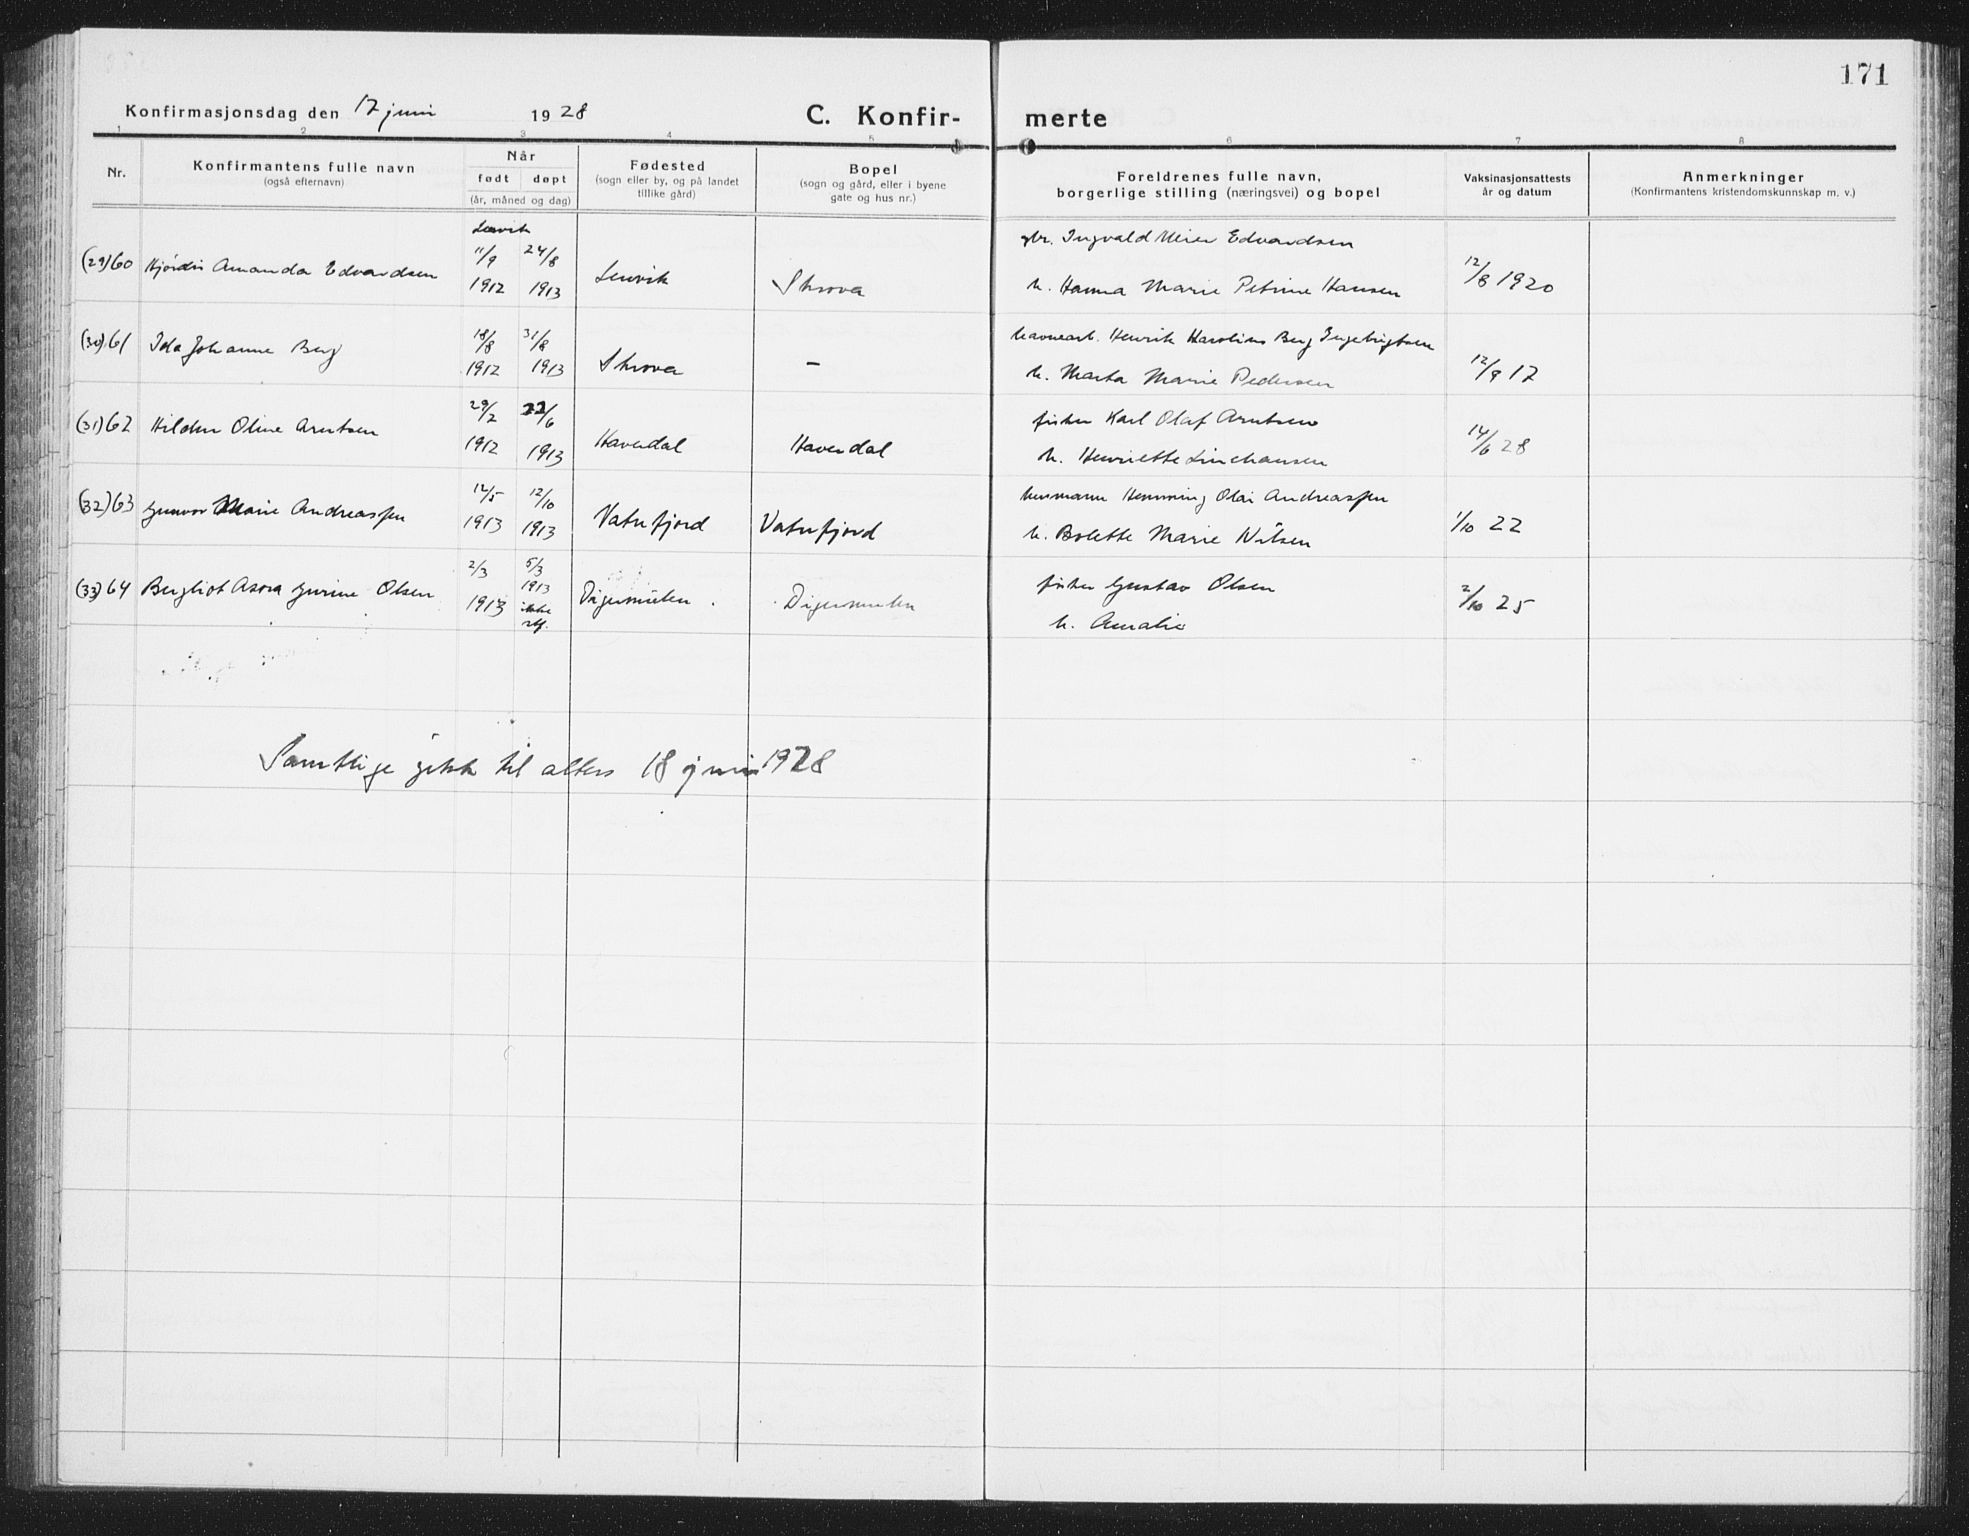 171
Konfirmasjonsdag den 17 juni 1928
C. Konfir-
merte
1 2 3 4 5 6 7 8
Nr.
Konfirmantens fulle navn
(også efternavn)
Når
født døpt
(år, måned og dag)
Fødested
(sogn eller by, og på landet
tillike gård)
Bopel
(sogn og gård, eller i byene
gate og hus nr.)
Foreldrenes fulle navn,
borgerlige stilling (næringsvei) og bopel
Vaksinasjonsattests
år og datum
Anmerkninger
(Konfirmantens kristendomskunnskap m. v.)
Lenvik
11/9 24/8 gbr. Ingvald Meier Edvardsen
(29)60 Hjørdis Amanda Edvardsen Lenvik Skrova 12/8 1920
1912 1913 h. Hanna Marie Petrine Hansen
18/8 31/8 havnearb. Henrik Karolius Berg Ingebrigtsen
(30)61 Ida Johanne Berg Skrova — 12/9 17
1912 1913 h. Marta Marie Pedersen
29/2 22/6 fisker Karl Olaf Arntsen
(31)62 Oline Arntsen Haverdal Haverdal 14/6 28
1912 1913 h. Henriette
12/5 12/10 husmann Hemming Olai Andreassen
(32)63 Gunvor Marie Andreassen Vatnfjord Vatnfjord 1/10 22
1913 1913 h. Bolette Marie Nilsen
2/3 5/3
1913
fisker Gustav Olsen
(33)64 Bergliot Asora Gurine Olsen 1913 ikke Digermulen Digermulen 2/10 25
stf. h. Amalie
Samtlige gikk til alters 18 juni 1928